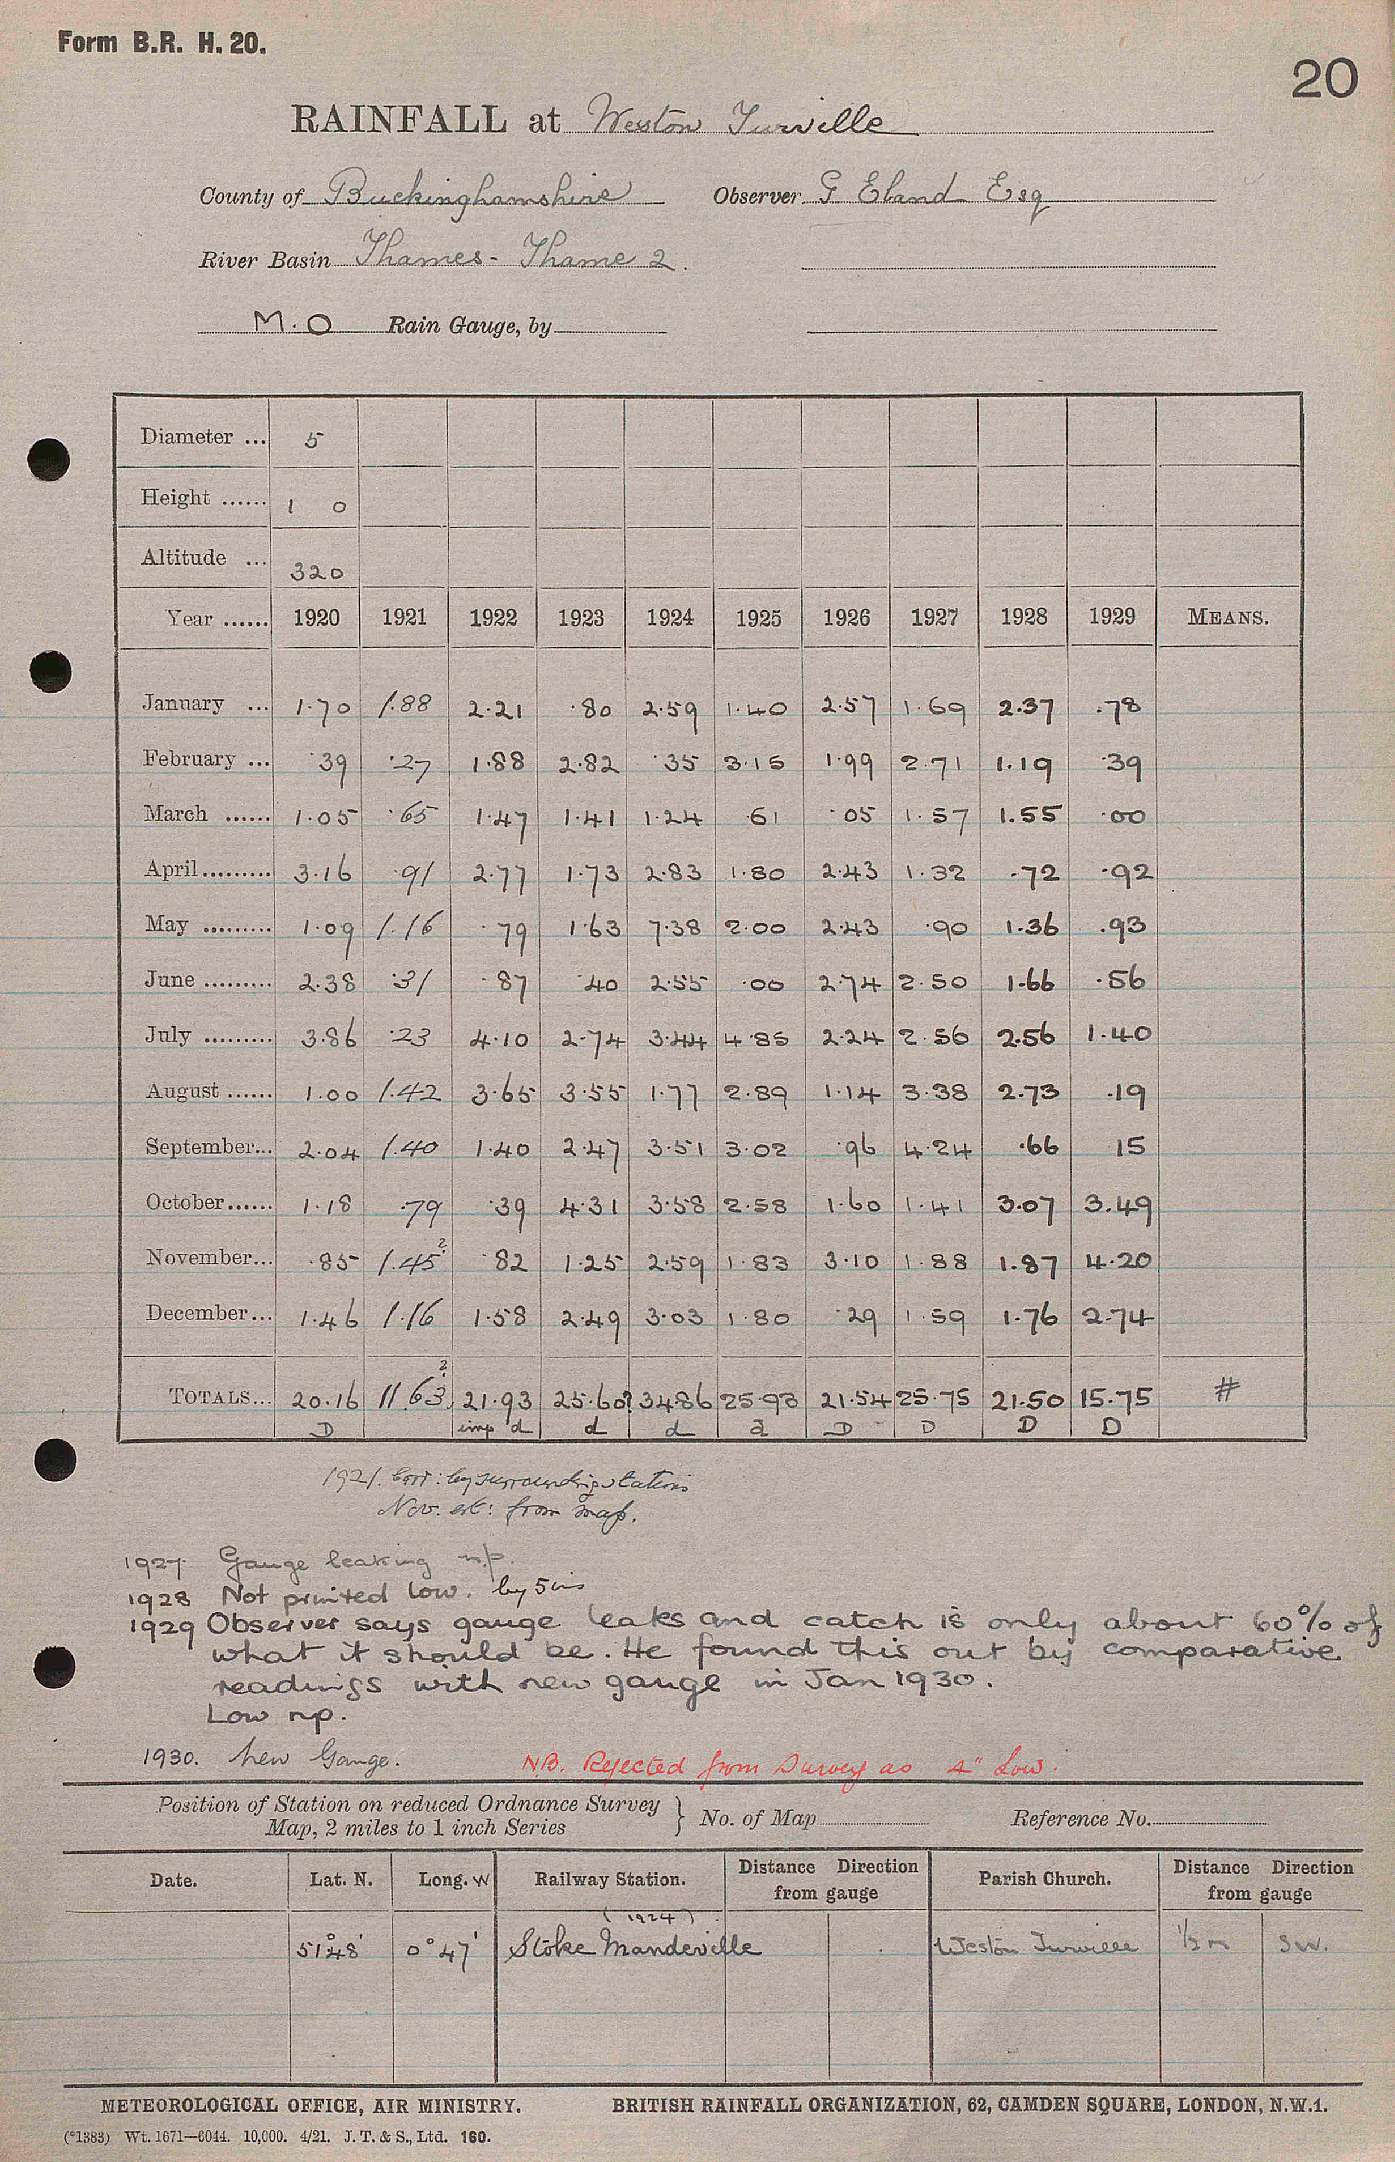 Form B.R. H. 20.
20
RAINFALL at Weston Turville
County of Buckinghamshire Observer G Eland Esq
River Basin Thames - Thame 2.
M.O Rain Gauge, by
Diameter ... 5
Height ...... 1 0
Altitude ... 320
Year ...... 1920 1921 1922 1923 1924 1925 1926 1927 1928 1929 MEANS.
January ... 1.70 1.88 2.21 .80 2.59 1.40 2.57 1.69 2.37 .78
February ... .39 .27 1.88 2.82 .35 3.15 1.99 2.71 1.19 .39
March ...... 1.05 .65 1.47 1.41 1.24 .61 .05 1.57 1.55 .00
April......... 3.16 .91 2.77 1.73 2.83 1.80 2.43 1.32 .72 .92
May ......... 1.09 1.16 .79 1.63 7.38 2.00 2.43 .90 1.36 .93
June ......... 2.38 .31 .87 .40 2.55 .00 2.74 2.50 1.66 .56
July ......... 3.86 .23 4.10 2.74 3.44 4.85 2.24 2.56 2.56 1.40
August ...... 1.00 1.42 3.65 3.55 1.77 2.89 1.14 3.38 2.73 .19
September... 2.04 1.40 1.40 2.47 3.51 3.02 .96 4.24 .66 15
October...... 1.18 .79 .39 4.31 3.58 2.58 1.60 1.41 3.07 3.49
November... .85 1.45? .82 1.25 2.59 1.83 3.10 1.88 1.87 4.20
December... 1.46 1.16 1.58 2.49 3.03 1.80 .29 1.59 1.76 2.74
TOTALS... 20.16 11.63? 21.93 25.60? 34.86 25.93 21.54 25.75 21.50 15.75 #
D imp d d d d D D D D
1921. Corr: by surrounding stations
Nov. est: from map.
1927 Gauge leaking n.p.
1928 Not printed low. by 5 ins
1929 Observer says gauge leaks and catch is only about 60% of
what it should be. He found this out by comparative
readings with new gauge in Jan 1930.
Low np.
1930. New Gauge. NB. Rejected from Survey as 4" Low.
Position of Station on reduced Ordnance Survey
Map, 2 miles to 1 inch Series } No. of Map Reference No.
Date. Lat. N. Long. W Railway Station. Distance Direction from gauge Parish Church. Distance Direction from gauge
(1924)
51°48' 0°47' Stoke Mandeville Weston Turville 1/2 m SW.
METEOROLOGICAL OFFICE, AIR MINISTRY. BRITISH RAINFALL ORGANIZATION, 62, CAMDEN SQUARE, LONDON, N.W.1.
(*1383) Wt. 1671—6044. 10,000. 4/21. J. T. & S., Ltd. 160.